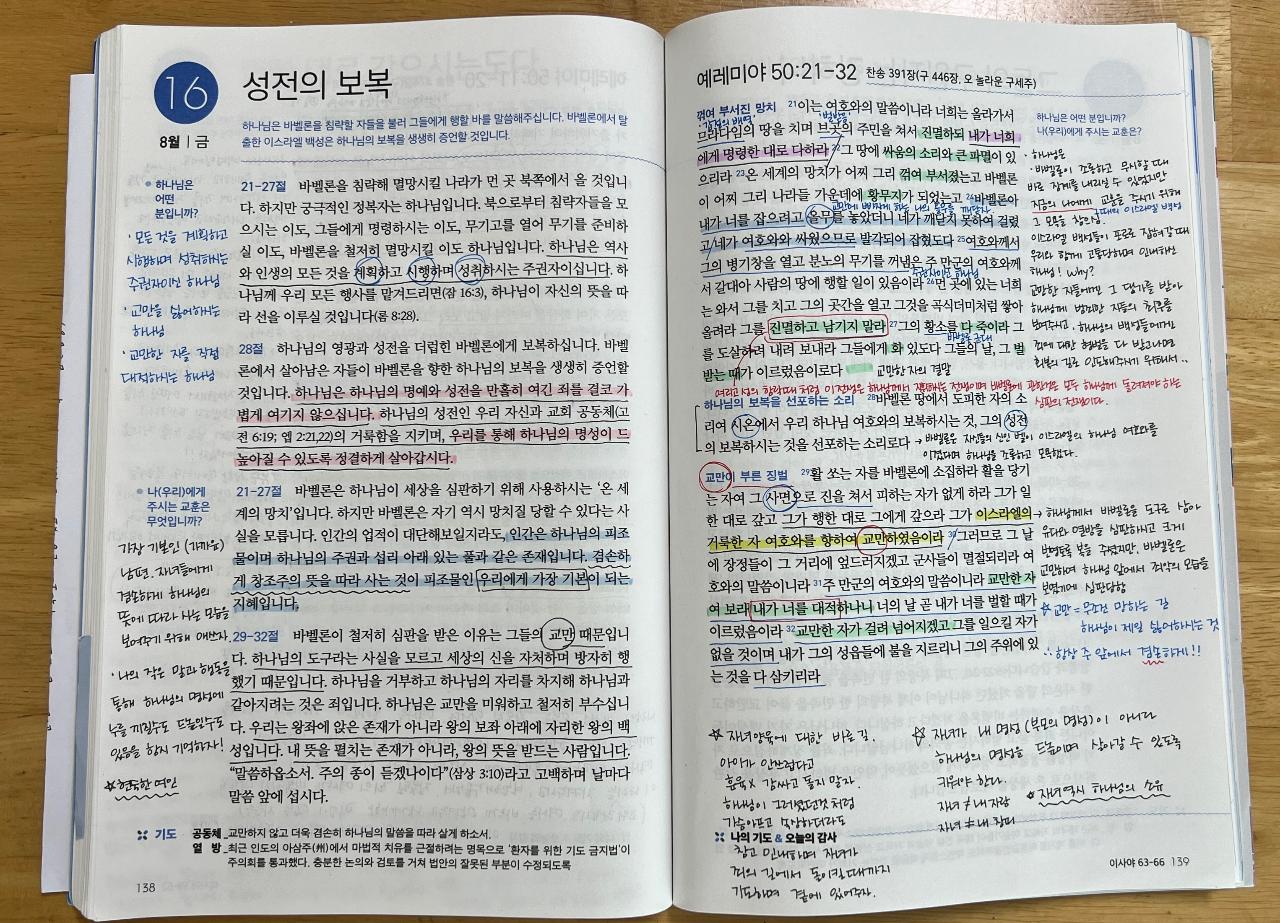 16
8월 | 금
성전의 보복
하나님은 바벨론을 침략할 자들을 불러 그들에게 행할 바를 말씀해주십니다. 바벨론에서 탈
출한 이스라엘 백성은 하나님의 보복을 생생히 증언할 것입니다.
하나님은
어떤
분입니까?
· 모든 것을 계획하고
시행하며 성취하는
주권자이신 하나님
· 교만을 싫어하시는
하나님
· 교만한 자를 직접
대적하시는 하나님
21-27절 바벨론을 침략해 멸망시킬 나라가 먼 곳 북쪽에서 올 것입니
다. 하지만 궁극적인 정복자는 하나님입니다. 북으로부터 침략자들을 모
으시는 이도, 그들에게 명령하시는 이도, 무기고를 열어 무기를 준비하
실 이도, 바벨론을 철저히 멸망시킬 이도 하나님입니다. 하나님은 역사
와 인생의 모든 것을 계획하고 시행하며 성취하시는 주권자이십니다. 하
나님께 우리 모든 행사를 맡겨드리면(잠 16:3), 하나님이 자신의 뜻을 따
라 선을 이루실 것입니다(롬 8:28).
28절 하나님의 영광과 성전을 더럽힌 바벨론에게 보복하십니다. 바벨
론에서 살아남은 자들이 바벨론을 향한 하나님의 보복을 생생히 증언할
것입니다. 하나님은 하나님의 명예와 성전을 만홀히 여긴 죄를 결코 가
볍게 여기지 않으십니다. 하나님의 성전인 우리 자신과 교회 공동체(고
전 6:19; 엡 2:21,22)의 거룩함을 지키며, 우리를 통해 하나님의 명성이 드
높아질 수 있도록 정결하게 살아갑시다.
나(우리)에게
주시는 교훈은
무엇입니까?
가장 기본인 (가까운)
남편. 자녀들에게
겸손하게 하나님의
뜻에 따라 사는 모습을
보여주기 위해 애쓰자.
· 나의 작은 말과 행동을
통해 하나님의 명성에
누를 끼칠수도 드높일수도
있음을 항시 기억하자!
☆현숙한 여인
21-27절 바벨론은 하나님이 세상을 심판하기 위해 사용하시는 '온 세
계의 망치'입니다. 하지만 바벨론은 자기 역시 망치질 당할 수 있다는 사
실을 모릅니다. 인간의 업적이 대단해보일지라도, 인간은 하나님의 피조
물이며 하나님의 주권과 섭리 아래 있는 풀과 같은 존재입니다. 겸손하
게 창조주의 뜻을 따라 사는 것이 피조물인 우리에게 가장 기본이 되는
지혜입니다.
29-32절 바벨론이 철저히 심판을 받은 이유는 그들의 교만 때문입니
다. 하나님의 도구라는 사실을 모르고 세상의 신을 자처하며 방자히 행
했기 때문입니다. 하나님을 거부하고 하나님의 자리를 차지해 하나님과
같아지려는 것은 죄입니다. 하나님은 교만을 미워하고 철저히 부수십니
다. 우리는 왕좌에 앉은 존재가 아니라 왕의 보좌 아래에 자리한 왕의 백
성입니다. 내 뜻을 펼치는 존재가 아니라, 왕의 뜻을 받드는 사람입니다.
"말씀하옵소서. 주의 종이 듣겠나이다"(삼상 3:10)라고 고백하며 날마다
말씀 앞에 섭시다.
기도 공동체_교만하지 않고 더욱 겸손히 하나님의 말씀을 따라 살게 하소서.
열 방_최근 인도의 아삼주(州)에서 마법적 치유를 근절하려는 명목으로 '환자를 위한 기도 금지법'이
주의회를 통과했다. 충분한 논의와 검토를 거쳐 법안의 잘못된 부분이 수정되도록
138
예레미야 50:21-32 찬송 391장(구 446장, 오 놀라운 구세주)
꺾여 부서진 망치 21이는 여호와의 말씀이니라 너희는 올라가서
므라다임의 땅을 치며 브곳의 주민을 쳐서 진멸하되 내가 너희
에게 명령한 대로 다하라 22그 땅에 싸움의 소리와 큰 파멸이 있
으리라 23온 세계의 망치가 어찌 그리 꺾여 부서졌는고 바벨론
이 어찌 그리 나라들 가운데에 황무지가 되었는고 24바벨론아
내가 너를 잡으려고 올무를 놓았더니 네가 깨닫지 못하여 걸렸
고 네가 여호와와 싸웠으므로 발각되어 잡혔도다 25여호와께서
그의 병기창을 열고 분노의 무기를 꺼냄은 주 만군의 여호와께
주권자이신 하나님
서 갈대아 사람의 땅에 행할 일이 있음이라 26먼 곳에 있는 너희
는 와서 그를 치고 그의 곳간을 열고 그것을 곡식더미처럼 쌓아
올려라 그를 진멸하고 남기지 말라 27그의 황소를 다 죽이라 그
를 도살하려 내려 보내라 그들에게 화 있도다 그들의 날, 그 벌
받는 때가 이르렀음이로다
교만한 자의 결말
하나님의 보복을 선포하는 소리 28바벨론 땅에서 도피한 자의 소
리여 시온에서 우리 하나님 여호와의 보복하시는 것, 그의 성전
의 보복하시는 것을 선포하는 소리로다
→ 바벨론은 자신들의 신인 벨이 이스라엘의 하나님 여호와를
이겼다며 하나님을 조롱하고 모욕했다.
교만이 부른 징벌 29활 쏘는 자를 바벨론에 소집하라 활을 당기
는 자여 그 사면으로 진을 쳐서 피하는 자가 없게 하라 그가 일
한 대로 갚고 그가 행한 대로 그에게 갚으라 그가 이스라엘의
거룩한 자 여호와를 향하여 교만하였음이라 30그러므로 그 날
에 장정들이 그 거리에 엎드러지겠고 군사들이 멸절되리라 여
호와의 말씀이니라 31주 만군의 여호와의 말씀이니라 교만한 자
여 보라 내가 너를 대적하나니 너의 날 곧 내가 너를 벌할 때가
이르렀음이라 32교만한 자가 걸려 넘어지겠고 그를 일으킬 자가
없을 것이며 내가 그의 성읍들에 불을 지르리니 그의 주위에 있
는 것을 다 삼키리라
하나님은 어떤 분입니까?
나(우리)에게 주시는 교훈은?
· 하나님은
· 바벨론이 조롱하고 무시할 때
바로 징계를 내리실 수 있었지만
지금의 나에게 교훈을 주시기 위해
그 모욕을 참으심.
이스라엘 백성들이 포로로 잡혀갈 때
우리와 함께 고통당하며 인내하신
하나님! Why?
교만한 자들에게는 그 댓가를 받아
하나님께 범죄한 자들의 최후를
보여주시고. 하나님의 백성들에게는
죄에 대한 형벌을 다 받고나면
회복의 길로 인도해주시기 위해서..
→ 하나님께서 바벨론을 도구로 삼아
유다와 열방을 심판하시고 크게
번영토록 복을 주셨지만. 바벨론은
교만하여 하나님 앞에서 죄악의 모습을
보였기에 심판당함
☆교만 = 무조건 망하는 길
하나님이 제일 싫어하시는 것
∴ 항상 주 앞에서 겸손하게!!
☆ 자녀양육에 대한 바른 길.
아이가 안쓰럽다고
훈육X 감싸고 돌지 말자.
하나님이 그러셨던것 처럼
가슴아프고 속상하더라도
☆. 자녀가 내 명성 (부모의 명성)이 아니라
하나님의 명성을 드높이며 살아갈 수 있도록
키워야 한다.
자녀 ≠ 내 자랑
자녀 ≠ 내
☆자녀역시 하나님의 소유
나의 기도 & 오늘의 감사
참고 인내하며 자녀가
죄의 길에서 돌이킬 때까지
기도하며 곁에 있어주자.
이사야 63-66 139